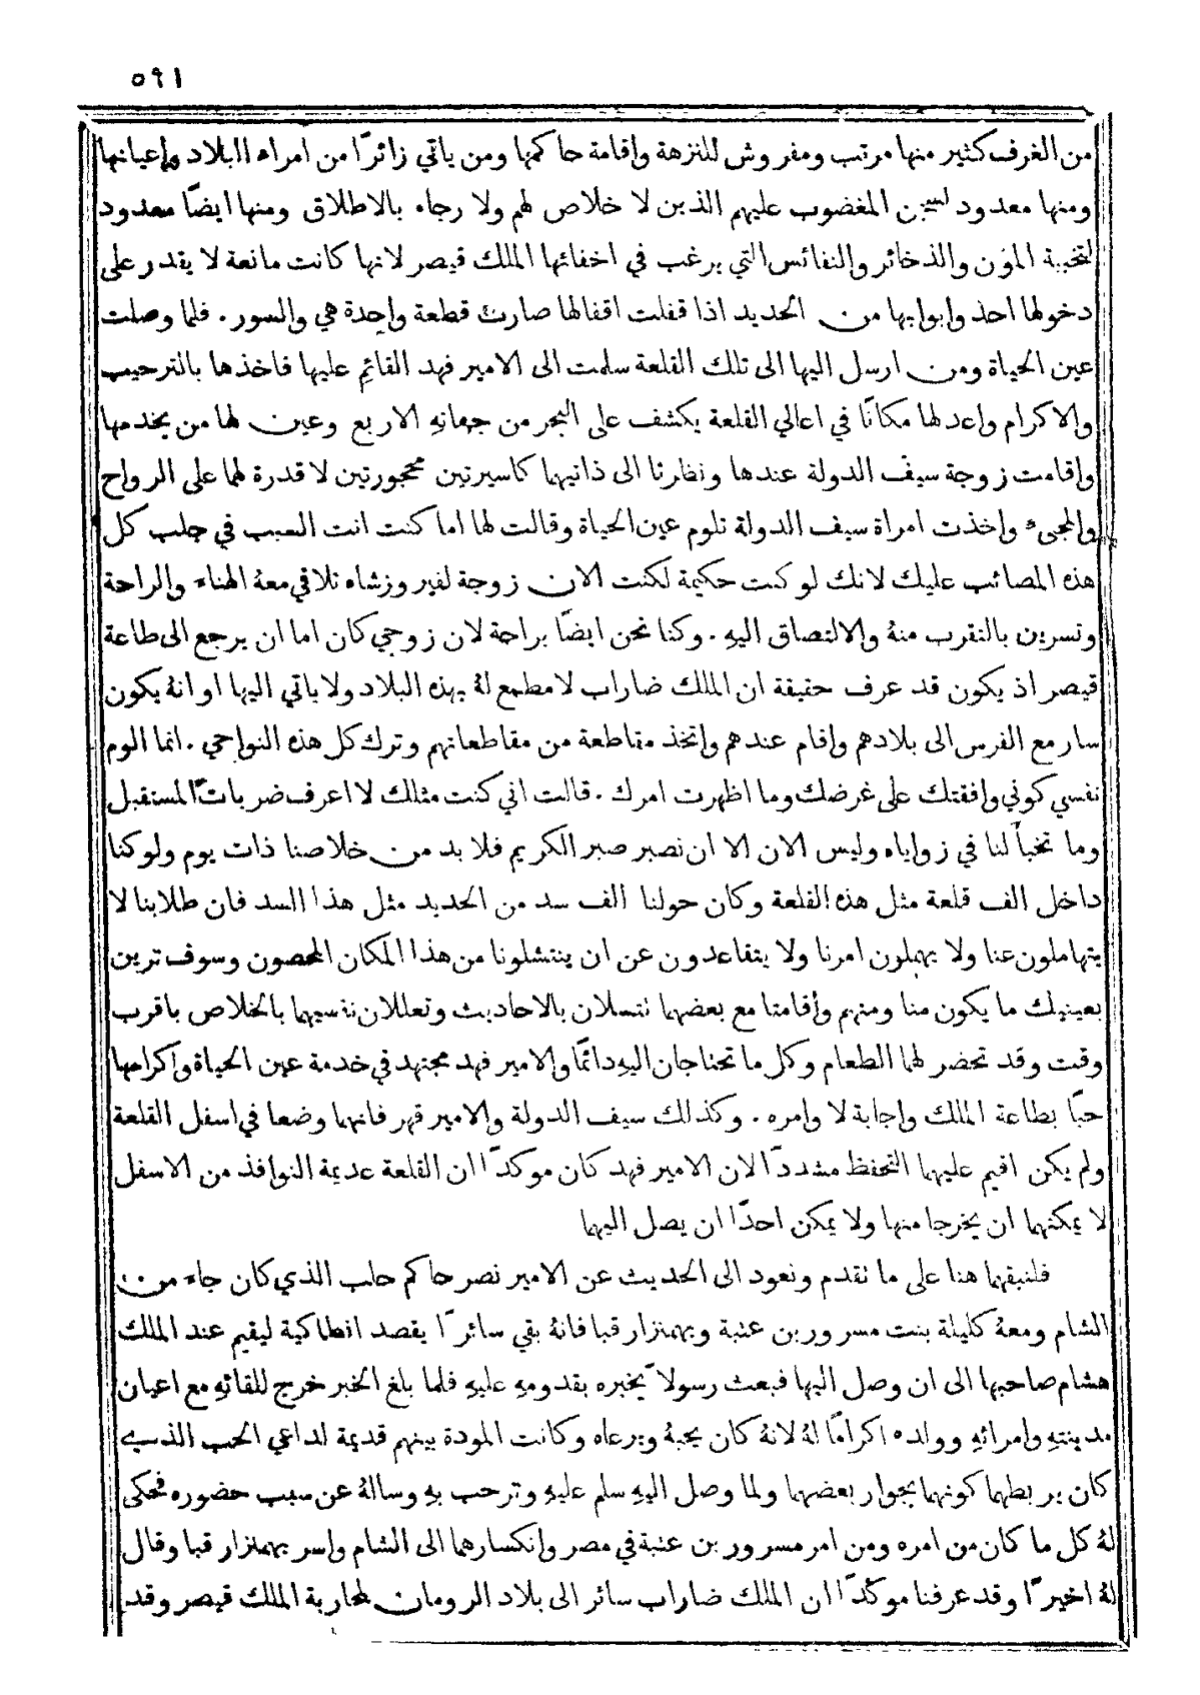 ٥٩١
من الغرف كثير منها مرتب ومفروش للنزهة واقامة حاكمها ومن ياتي زائرًا من امراء البلاد واعيانها
ومنها معدود لسجن المغضوب عليهم الذين لا خلاص لهم ولا رجاء بالاطلاق ومنها ايضًا معدود
لتخبية المؤن والذخائر والنفائس التي يرغب في اخفائها الملك قيصر لانها كانت مانعة لا يقدر على
دخولها احد وابوابها من الحديد اذا قفلت اقفالها صارت قطعة واحدة هي والسور . فلما وصلت
عين الحياة ومن ارسل اليها الى تلك القلعة سلمت الى الامير فهد القائم عليها فاخذها بالترحيب
والاكرام واعد لها مكانًا في اعالي القلعة يكشف على البحر من جهاتهِ الاربع وعين لها من يخدمها
واقامت زوجة سيف الدولة عندها ونظرتا الى ذاتيهما كاسيرتين محجورتين لا قدرة لهما على الرواح
والمجيء واخذت امراة سيف الدولة تلوم عين الحياة وقالت لها اما كنت انت السبب في جلب كل
هذه المصائب عليك لانك لو كنت حكيمة لكنت الان زوجة لفيروزشاه تلاقي معهُ الهناء والراحة
وتسرين بالتقرب منهُ والالتصاق اليهِ . وكنا نحن ايضًا براحة لان زوجي كان اما ان يرجع الى طاعة
قيصر اذ يكون قد عرف حقيقة ان الملك ضاراب لا مطمع لهُ بهذه البلاد ولا ياتي اليها او انهُ يكون
سار مع الفرس الى بلادهم واقام عندهم واتخذ مقاطعة من مقاطعاتهم وترك كل هذه النواحي . انما الوم
نفسي كوني وافقتك على غرضك وما اظهرت امرك . قالت اني كنت مثلك لا اعرف ضربات المستقبل
وما تخبأ لنا في زواياه وليس الان الا ان نصبر صبر الكريم فلا بد من خلاصنا ذات يوم ولو كنا
داخل الف قلعة مثل هذه القلعة وكان حولنا الف سد من الحديد مثل هذا السد فان طلابنا لا
يتهاملون عنا ولا يهملون امرنا ولا يتقاعدون عن ان ينتشلونا من هذا المكان المحصون وسوف ترين
بعينيك ما يكون منا ومنهم واقامتا مع بعضهما تتسلان بالاحاديث وتعللان نفسيهما بالخلاص باقرب
وقت وقد تحضر لهما الطعام وكل ما تحتاجان اليهِ دائمًا والامير فهد مجتهد في خدمة عين الحياة واكرامها
حبًا بطاعة الملك واجابة لاوامره . وكذلك سيف الدولة والامير قهر فانهما وضعا في اسفل القلعة
ولم يكن اقيم عليهما التحفظ مشددًا لان الامير فهد كان موكدًا ان القلعة عديمة النوافذ من الاسفل
لا يمكنهما ان يخرجا منها ولا يمكن احدًا ان يصل اليهما
فلنبقهما هنا على ما تقدم ونعود الى الحديث عن الامير نصر حاكم حلب الذي كان جاء من
الشام ومعهُ كليلة بنت مسرور بن عتبة وبهمنزار قبا فانهُ بقي سائرًا يقصد انطاكية ليقيم عند الملك
هشام صاحبها الى ان وصل اليها فبعث رسولاً يخبره بقدومهِ عليهِ فلما بلغ الخبر خرج للقائهِ مع اعيان
مدينتهِ وامرائهِ وولده اكرامًا لهُ لانهُ كان يحبهُ ويرعاه وكانت المودة بينهم قديمة لداعي الحب الذي
كان يربطهما كونهما بجوار بعضهما ولما وصل اليهِ سلم عليهِ وترحب بهِ وسالهُ عن سبب حضوره فحكى
لهُ كل ما كان من امره ومن امر مسرور بن عتبة في مصر وانكسارهما الى الشام واسر بهمنزار قبا وقال
لهُ اخيرًا وقد عرفنا موكدًا ان الملك ضاراب سائر الى بلاد الرومان لمحاربة الملك قيصر وقد